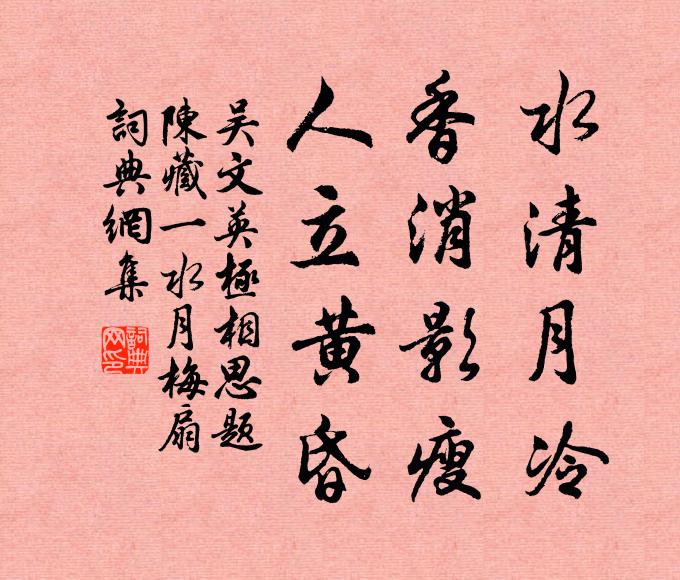 水清月冷
香消影瘦
人立黄昏
吴文英極相思題
陳藏一水月梅扇
詞典網集
詞典
网印